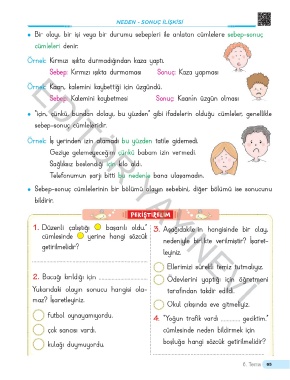 NEDEN - SONUÇ İLİŞKİSİ
• Bir olay, bir işi veya bir durumu sebepleri ile anlatan cümlelere sebep-sonuç
cümleleri denir.
Örnek: Kırmızı ışıkta durmadığından kaza yaptı.
Sebep: Kırmızı ışıkta durmaması Sonuç: Kaza yapması
Örnek: Kaan, kalemini kaybettiği için üzgündü.
Sebep: Kalemini kaybetmesi Sonuç: Kaanın üzgün olması
• "için, çünkü, bundan dolayı, bu yüzden" gibi ifadelerin olduğu cümleler, genellikle
sebep-sonuç cümleleridir.
Örnek: İş yerinden izin alamadı bu yüzden tatile gidemedi.
Geziye gelemeyeceğim çünkü babam izin vermedi.
Sağlıksız beslendiği için kilo aldı.
Telefonumun şarjı bitti bu nedenle bana ulaşamadın.
• Sebep-sonuç cümlelerinin bir bölümü olayın sebebini, diğer bölümü ise sonucunu
bildirir.
PEKİŞTİRELİM
1. Düzenli çalıştığı başarılı oldu."
cümlesinde yerine hangi sözcük
getirilmelidir?
2. Bacağı kırıldığı için ..............
Yukarıdaki olayın sonucu hangisi ola-
maz? İşaretleyiniz.
futbol oynayamıyordu.
çok canası vardı.
kulağı duymuyordu.
3. Aşağıdakilerin hangisinde bir olay,
nedeniyle birlikte verilmiştir? İşaret-
leyiniz.
Ellerimizi sürekli temiz tutmalıyız.
Ödevlerini yaptığı için öğretmeni
tarafından takdir edildi.
Okul çıkışında eve gitmeliyiz.
4. "Yoğun trafik vardı ........ geciktim."
cümlesinde neden bildirmek için
boşluğa hangi sözcük getirilmelidir?
6. Tema 95
EDİTÖR YAYINEVİ